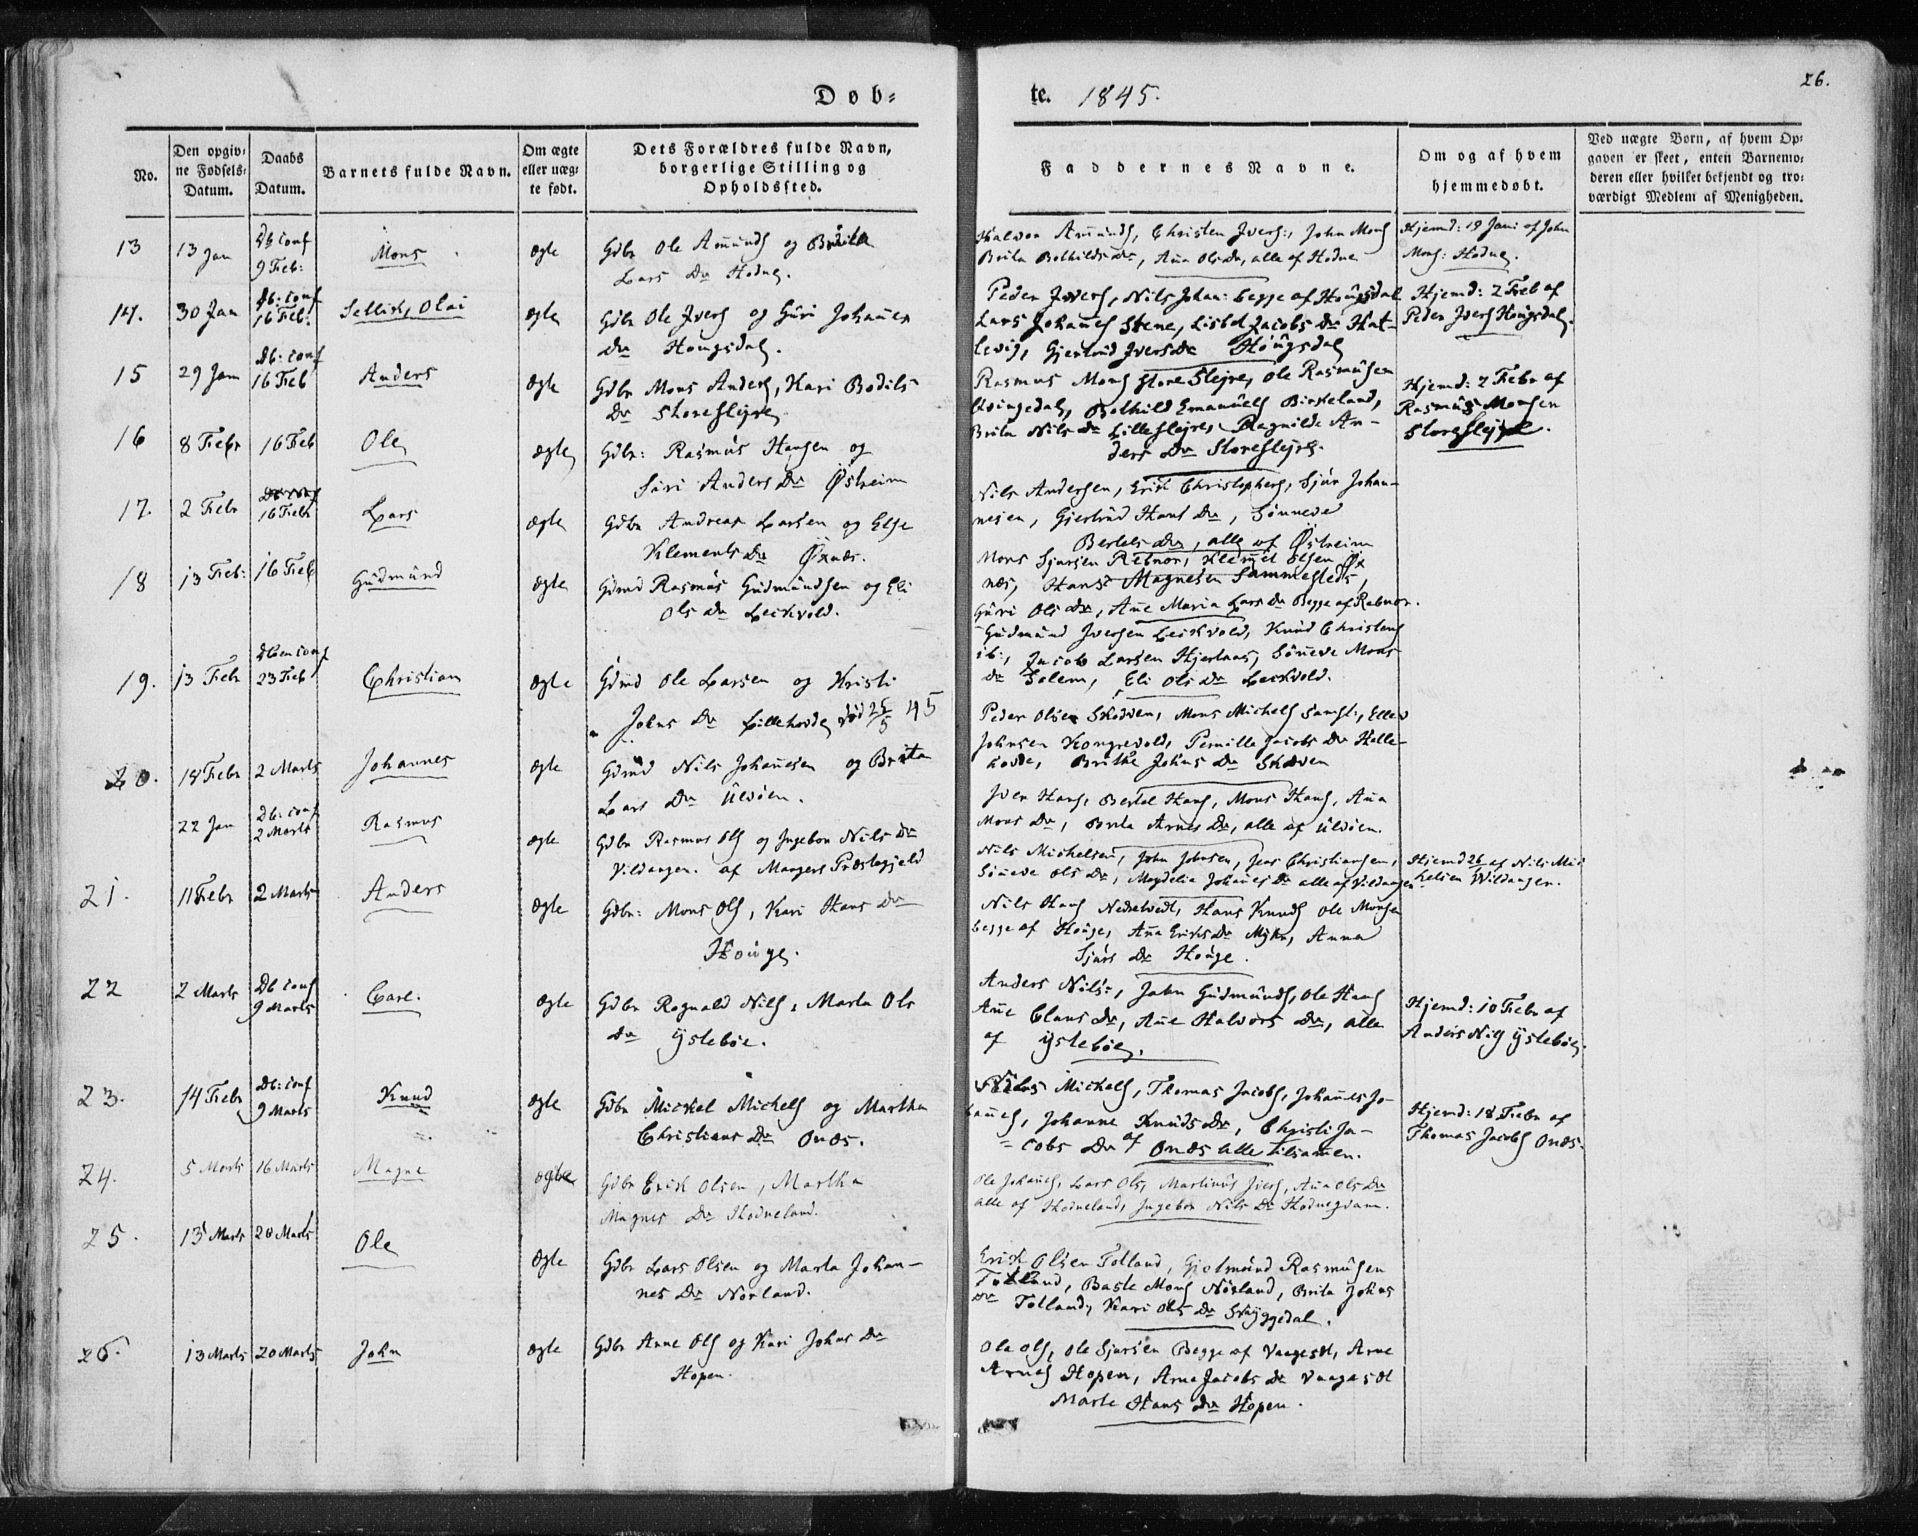 26.
Døb-
te. 1845.
No.
Den opgiv-
ne Fødsels-
Datum.
Daabs
Datum.
Barnets fulde Navn.
Om ægte
eller uæg-
te født.
Dets Forældres fulde Navn,
borgerlige Stilling og
Opholdssted.
Faddernes Navne.
Om og af hvem
hjemmedøbt.
Ved uægte Børn, af hvem Op-
gaven er skeet, enten Barnemo-
deren eller hvilket bekjendt og tro-
værdigt Medlem af Menigheden.
13
13 Jan
Db conf
9 Feb:
Mons
ægte
Gdbr Ole Amunds og Brita
Lars Dr Hodne.
Amunds, Christen Ivers:, John Mons
Brita Bothilds Dr, Ana Ols Dr, alle af Hodne
Hjemd: 19 Jani af John
Mons: Hodne.
14.
30 Jan
Db: conf
16 Feb:
Olai
ægte
Gdbr Ole Ivers og Guri Johannes
Dr Hougsdal.
Peder Ivers, Nils Johan: begge af Hougsdal
Lars Johannes Stene, Lisbet Jacobs Dr Hat-
levig, Gjertrud Ivers Dr Hougsdal
Hjemd: 2 Feb af
Peder Ivers Hougsdal.
15
29 Jan
Db: conf
16 Feb
Anders
ægte
Gdbr Mons Anders, Kari Bodils
Dr Storeslejre
Rasmus Mons Storeslejre, Ole Rasmusen
Qvingedal, Bothild Emanuels Birkeland,
Brita Nils Dr Lilleslejre, Ragnilde An-
ders Dr Storeslejre.
Hjemd: 2 Febr af
Rasmus Monsen
Storeslejre.
16
8 Febr
16 Feb
Ole
ægte
Gdbr: Rasmus Hansen og
Siri Anders Dr Østreim
Nils Andersen, Erik Christophers, Sjur Johan-
nesen, Gjertrud Hans Dr, Sønneve
Bertels Dr, alle af Østreim
17.
2 Febr
16 Febr
Lars
ægte
Gdbr Andreas Larsen og Else
Klements Dr Øxnæs.
Mons Sjursen Rebnor, Klemet Olsen Øx
næs, Hans Magnesen Sammesteds,
Guri Ols Dr, Ane Maria Lars Dr Begge af Rebnor.
18
13 Feb:
16 Feb
Gudmund
ægte
Gdmd Rasmus Gudmundsen og Eli
Ols Dr Leikvold.
Gudmund Iversen Leikvold, Knud Christens
ib:, Jacob Larsen Hjertaas, Sønneve Mons
Dr Solem, Eli Ols Dr Leikvold.
19.
13 Feb
Db en conf
23 Feb
Christian
ægte
Gdmd Ole Larsen og Kristi
Johns Dr Lillehovde død 25/5 45
Peder Olsen Skodven, Mons Michels Samst:, Ellen
Johnsen Kongrevold, Pernille Jacobs Dr Halle-
hovde, Brithe Johns Dr Skodven
20.
18 Febr
2 Marts
Johannes
ægte
Gdmd Nils Johannesen og Brita
Lars Dr Uldøen.
Iver Hans, Bertel Hans, Mons Hans, Ana
Mons Dr, Brita Arnes Dr, alle af Uldøen.
22 Jan
Db: conf
2 Marts
Rasmus
ægte
Gdbr Rasmus Ols og Ingebor Nils Dr
Vildanger. af Mangers Præstegjeld
Nils Michelsen, John Johnsen, Jens Christiansen,
Sønneve Ols Dr, Magdelia Johannes Dr alle af Vildanger
Hjemd 26 af Nils Mi-
chelsen Wildanger.
21.
11 Febr
2 Marts
Anders
ægte
Gdbr: Mons Ols, Kari Hans Dr
Houge.
Nils Hans Nedretvedt, Hans Knuds Ole Monsen
begge af Houge, Ana Eriks Dr Mykn, Anna
Sjurs Dr Houge.
22
2 Marts
Db conf
9 Marts
Carl.
ægte
Gdbr Rognald Nils, Marta Ols
Dr Ystebøe.
Anders Nils:, John Gudmunds, Ole Hans
Ane Claus Dr, Ane Halvors Dr, alle
af Ystebøe.
Hjemd: 10 Febr af
Anders Nils Ystebøe.
23.
14 Febr
Db: conf
9 Marts
Knud
ægte
Gdbr Mickel Michels og Martha
Christians Dr Onæs.
Michels, Thomas Jacobs, Johannes Jo-
hannes, Johanne Knuds Dr, Christi Ja-
cobs Dr af Onæs alle tilsamen.
Hjemd: 18 Febr af
Thomas Jacobs Onæs.
24.
5 Marts
16 Marts
Magne
ægte
Gdbr Erik Olsen, Martha
Magnes Dr Hodneland.
Ole Johannes, Lars Ols, Martinus Ivers, Ana Ols Dr
alle af Hodneland, Ingebor Nils Dr Hodnegdam.
25.
13 Marts
20 Marts
Ole
ægte
Gdbr Lars Olsen og Marta Johan-
nes Dr Norland.
Erik Olsen Totland, Gjelmund Rasmusen
Totland, Baste Mons Norland, Brita Johns
Dr Totland, Kari Ols Dr Skyggedal.
26.
13 Marts
20 Marts
John
ægte
Gdbr Anne Ols og Kari Johns Dr
Hopen.
Ole Ols, Ole Sjursen Begge af Vaageset, Arne
Arnes Hopen, Arna Jacobs Dr Vaageset
Marte Hans Dr Hopen.